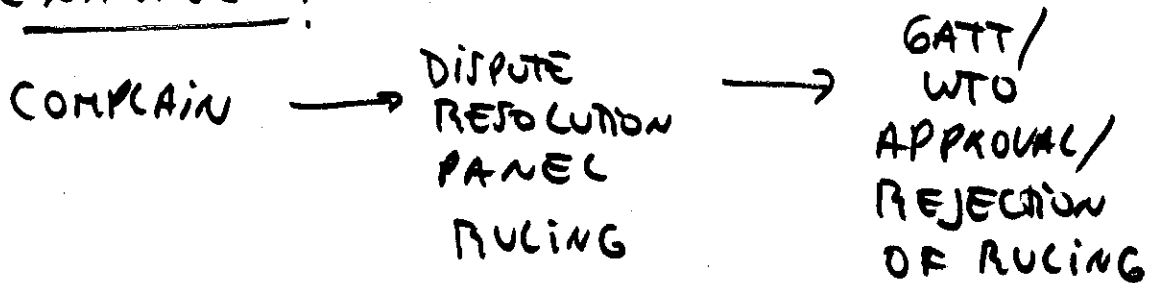 COMPLAIN → DISPUTE RESOLUTION PANEL RULING → GATT/ WTO APPROVAL/ REJECTION OF RULING